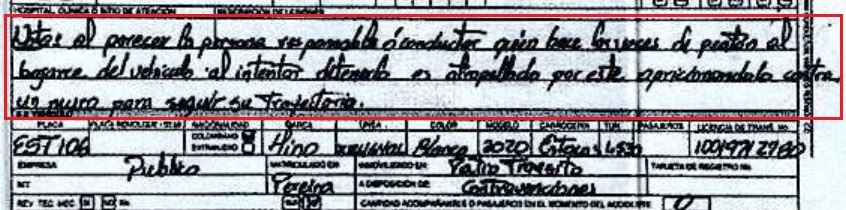 HOSPITAL, CLÍNICA O SITIO DE ATENCIÓN
Notas al parecer la persona responsable ó conductor quién hace las veces de peatón al
bajarse del vehículo al intentar detenerlo es atropellado por este apricionandolo contra
un muro para seguir su Trayectoria.
PLACA MARCA LINEA COLOR MODELO CARROCERIA TON. PASAJEROS LICENCIA DE TRANS. No.
EST106 COLOMBIANO Hino Blanco 2020 Estacas
EXTRANJERO
EMPRESA Publico MATRICULADO EN INMOVILIZADO EN Patio Transito TARJETA DE REGISTRO No.
NIT Pereira A DISPOSICIÓN DE Contravenciones
REV. TEC. MEC. CANTIDAD ACOMPAÑANTES O PASAJEROS EN EL MOMENTO DEL ACCIDENTE 0